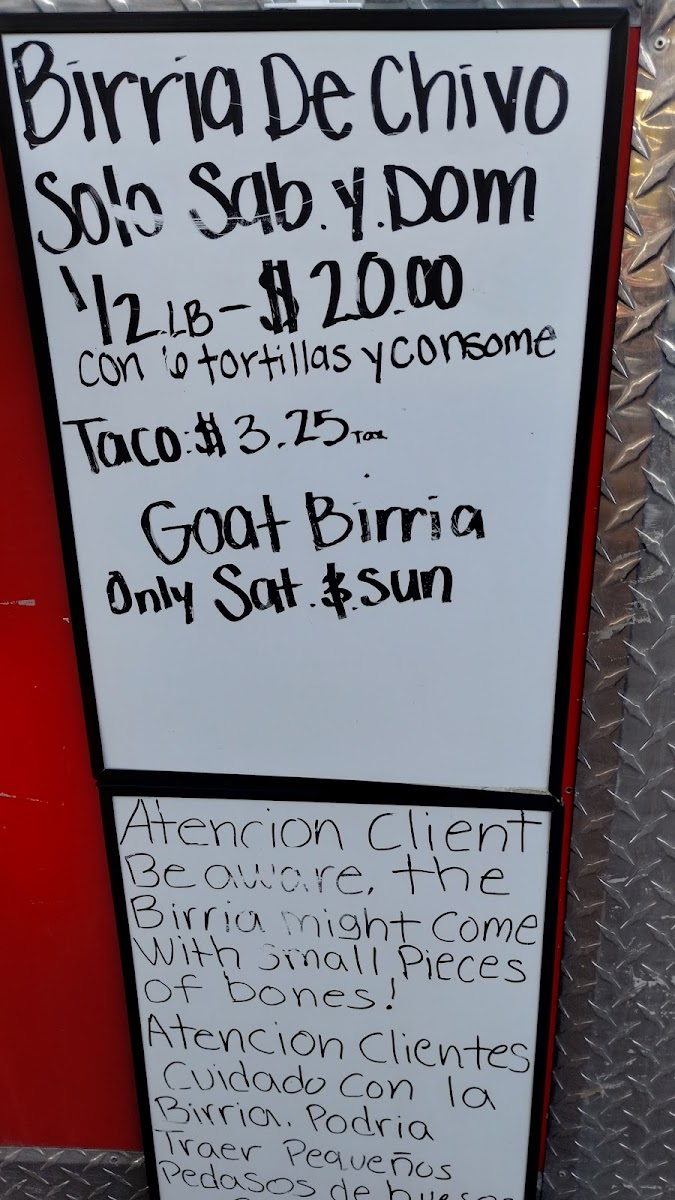 Birria De Chivo
Solo Sab. y. Dom
1/2 LB - $20.00
con 6 tortillas y consome
Taco: $3.25 Tax
Goat Birria
Only Sat. $. Sun
Atencion Client
Be aware, the
Birria might come
With Small Pieces
of bones!
Atencion Clientes
Cuidado Con la
Birria. Podria
Traer Pequeños
Pedasos de